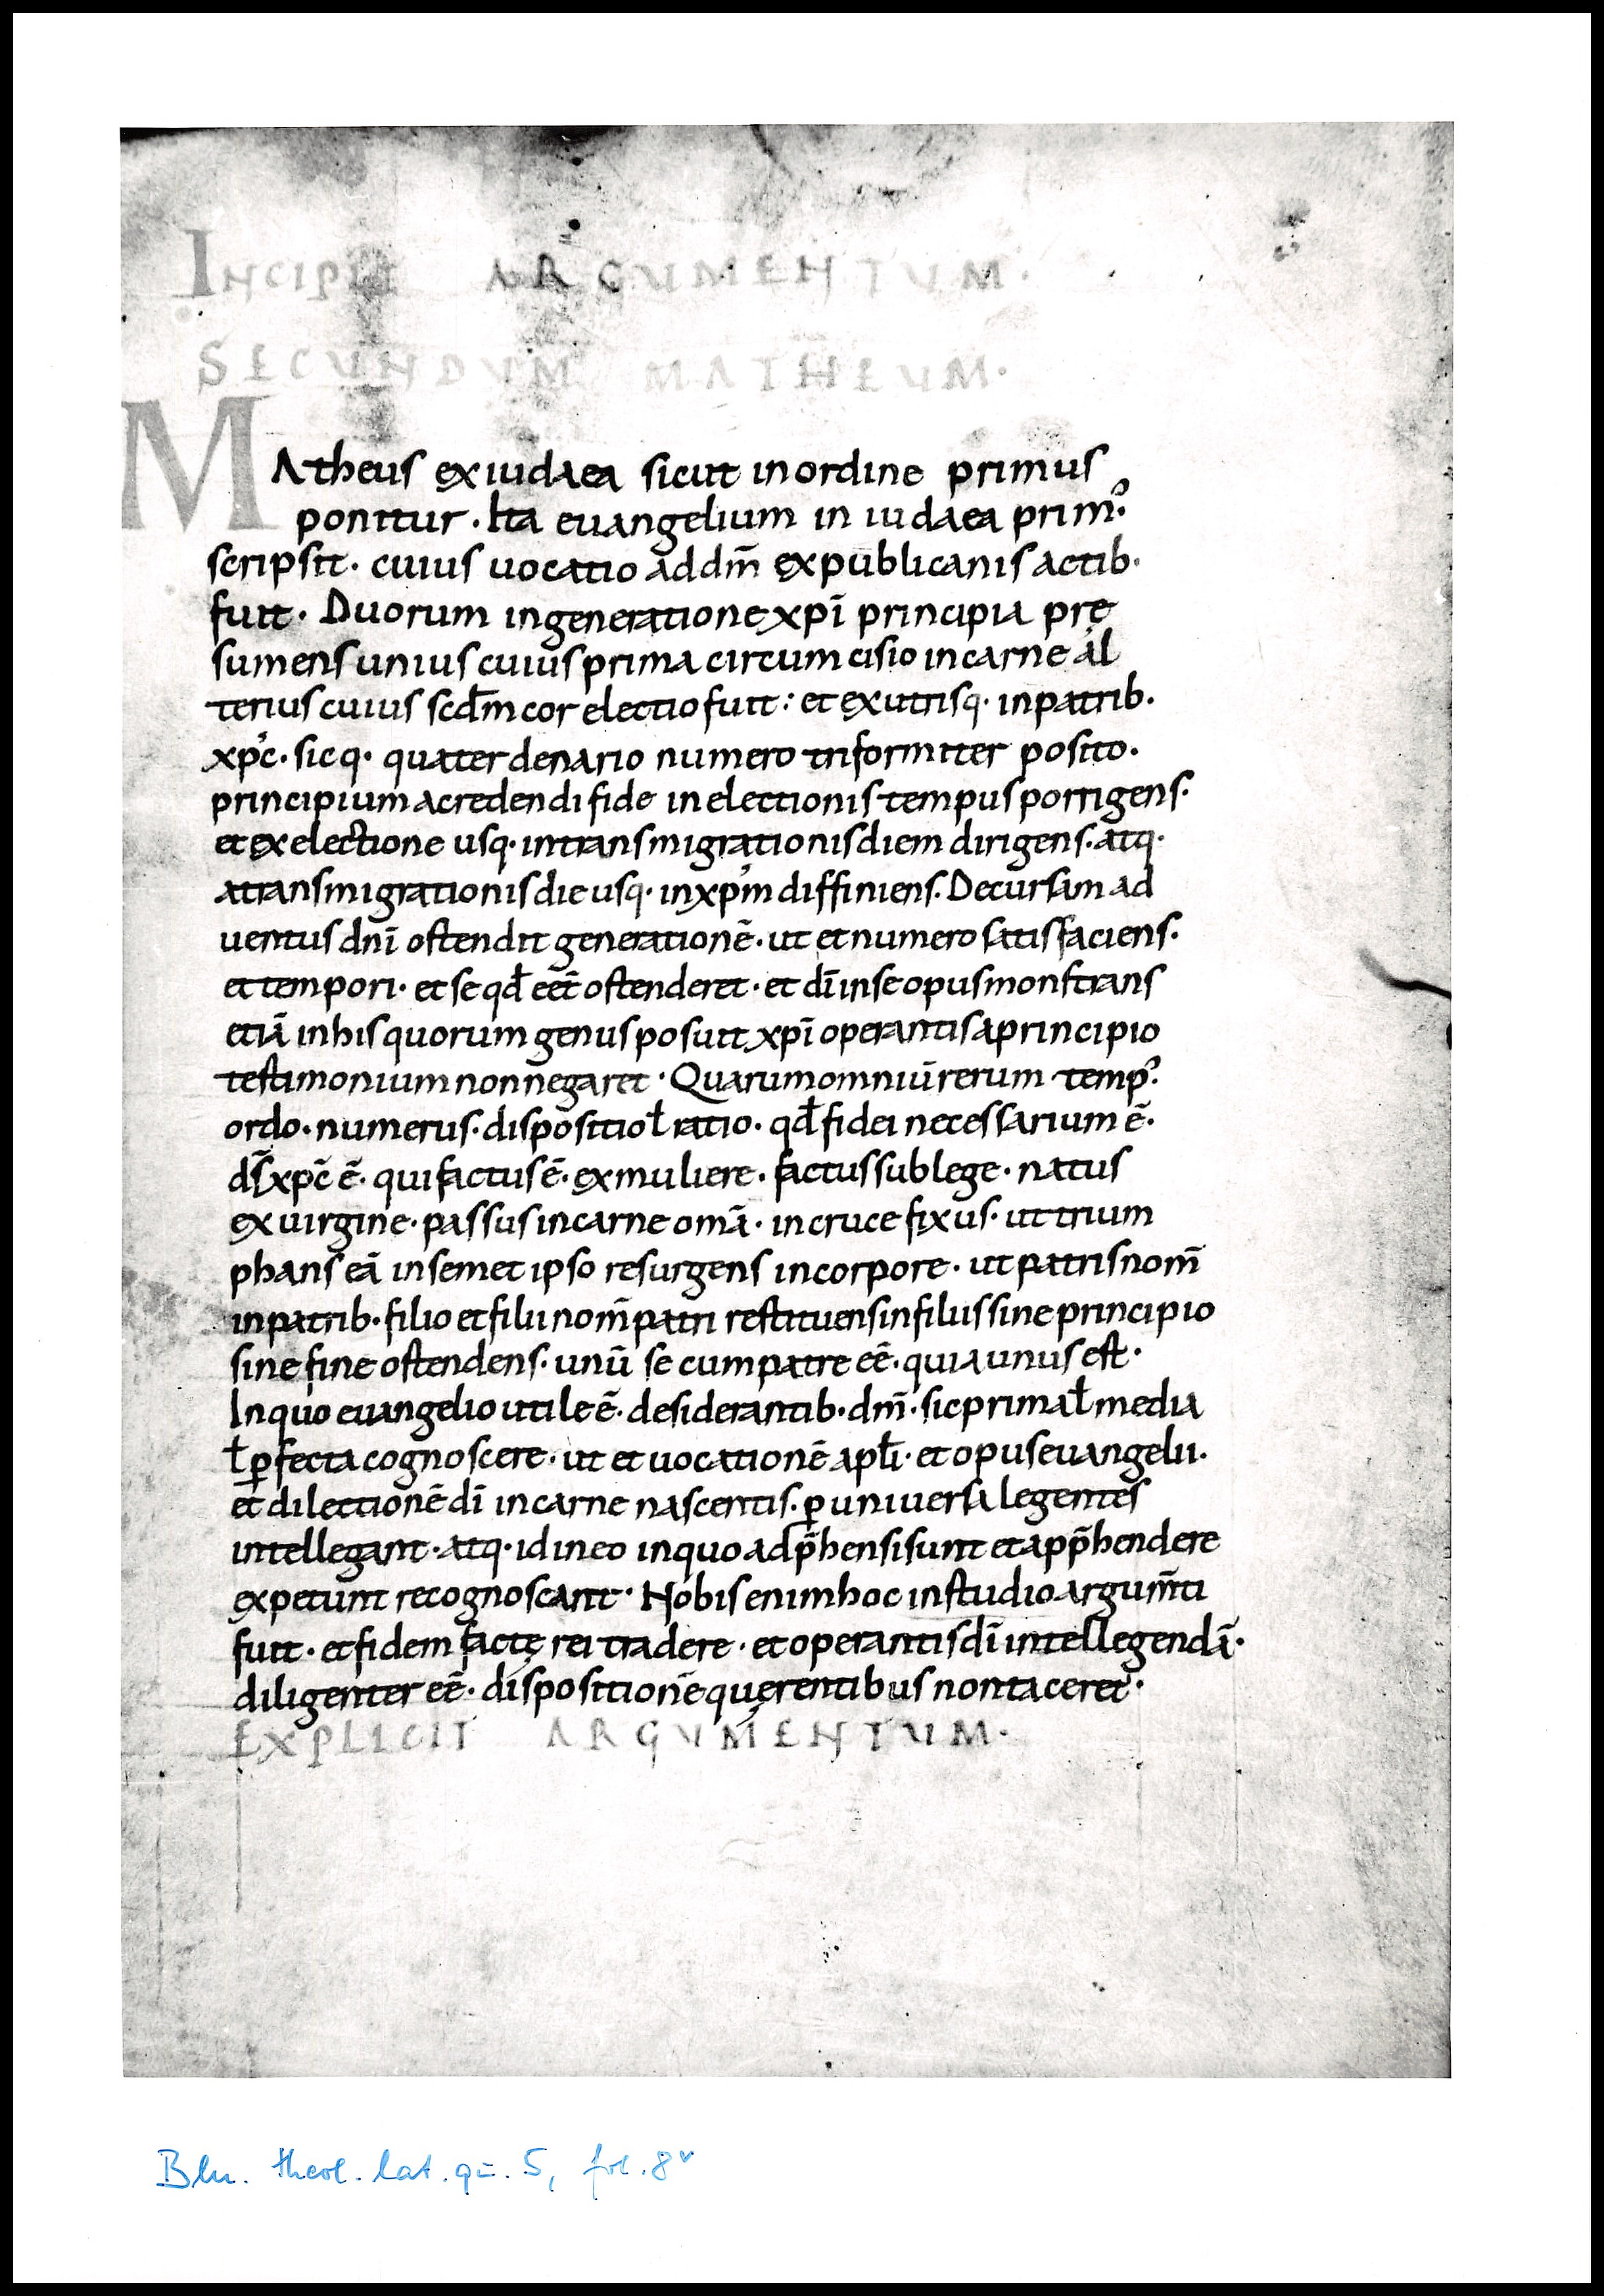 INCIPIT ARGUMENTUM·
SECUNDUM MATHEUM·
MAtheus ex iudaea sicut in ordine primus
ponitur · Ita euangelium in iudaea prim᾿·
scripsit · cuius uocatio ad dm̅ ex publicanis actib·
fuit · Duorum in generatione xpī principia prę
sumens unius cuius prima circumcisio in carne al
terius cuius scd̄m cor electio fuit : et ex utrisq· in patrib·
xp̄c · sicq· quater denario numero triformiter posito·
principium a credendi fide in electionis tempus porrigens·
et ex electione usq· in transmigrationis diem dirigens · atq·
a transmigrationis die usq· in xp̄m diffiniens · Decursam ad
uentus dnī ostendit generationē · ut et numero satisfaciens·
et tempori · et se qd̄ eēt ostenderet · et dī in se opus monstrans
etiā in his quorum genus posuit xpī operantis a principio
testimonium non negaret · Quarum omniū rerum temp᾿·
ordo · numerus · dispositio ł ratio · qd̄ fidei necessarium ē·
ds̄ xp̄c ē · qui factus ē · ex muliere · factus sub lege · natus
ex uirgine · passus in carne omā · in cruce fixus · ut trium
phans eā in semet ipso resurgens in corpore · ut patris nom̄
in patrib· filio et filii nom̄ patri restituens in filiis sine principio
sine fine ostendens · unū se cum patre eē · quia unus est·
In quo euangelio utile ē · desiderantib· dm̄ · sic prima ł media
ł ꝑfecta cognoscere · ut et uocationē apłi · et opus euangelii·
et dilectionē dī in carne nascentis · ꝑ uniuersa legentes
intellegant · atq· id in eo in quo adp̄hensi sunt et app̄hendere
expetunt recognoscant · Nobis enim hoc in studio argum̄ti
fuit · et fidem factę rei tradere · et operantis dī intellegendā·
diligenter eē · dispositionē quęrentibus non taceret·
EXPLICIT ARGUMENTUM·
Bln. theol. lat. qu. 5, fol. 8ᵛ